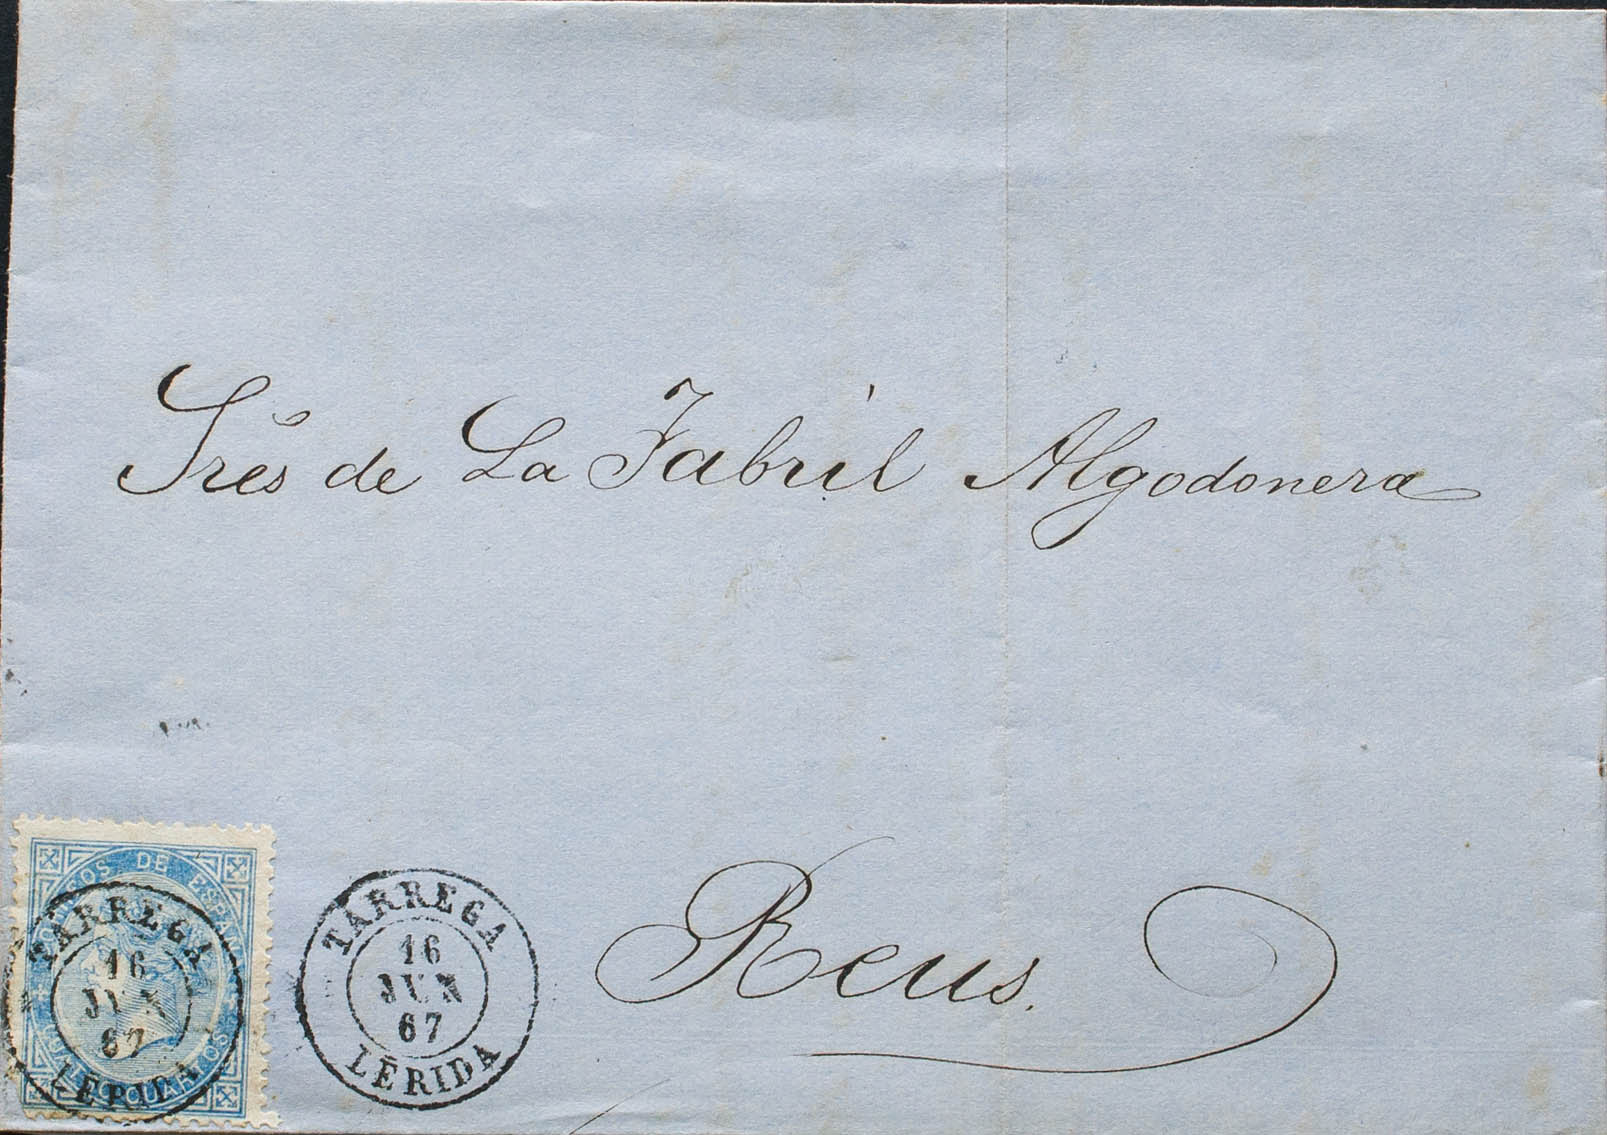 Sres de La Fabril Algodonera
Reus.
CORREOS DE ESPAÑA
TARREGA
16
JUN
67
LERIDA
CUATRO CUARTOS
TARREGA
16
JUN
67
LÉRIDA